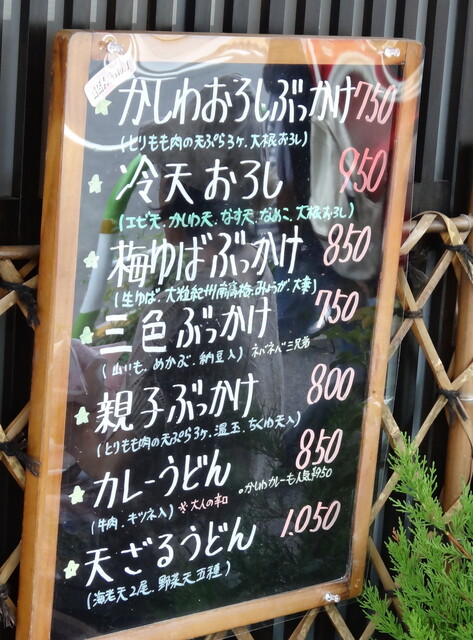 かしわおろしぶっかけ 750
(とりもも肉の天ぷら3ヶ、大根おろし)
冷天おろし 950
(エビ天、かしわ天、なす天、なめこ、大根おろし)
梅ゆばぶっかけ 850
(生ゆば、大粒紀州南高梅、みょうが、大葉)
三色ぶっかけ 750
(山いも、めかぶ、納豆入) ネバネバ三兄弟
親子ぶっかけ 800
(とりもも肉の天ぷら3ヶ、温玉、ちくわ天入)
カレーうどん 850
(牛肉、キツネ入) 大人の辛口 かしわカレーも人気¥950
天ざるうどん 1.050
(海老天2尾、野菜天五種)